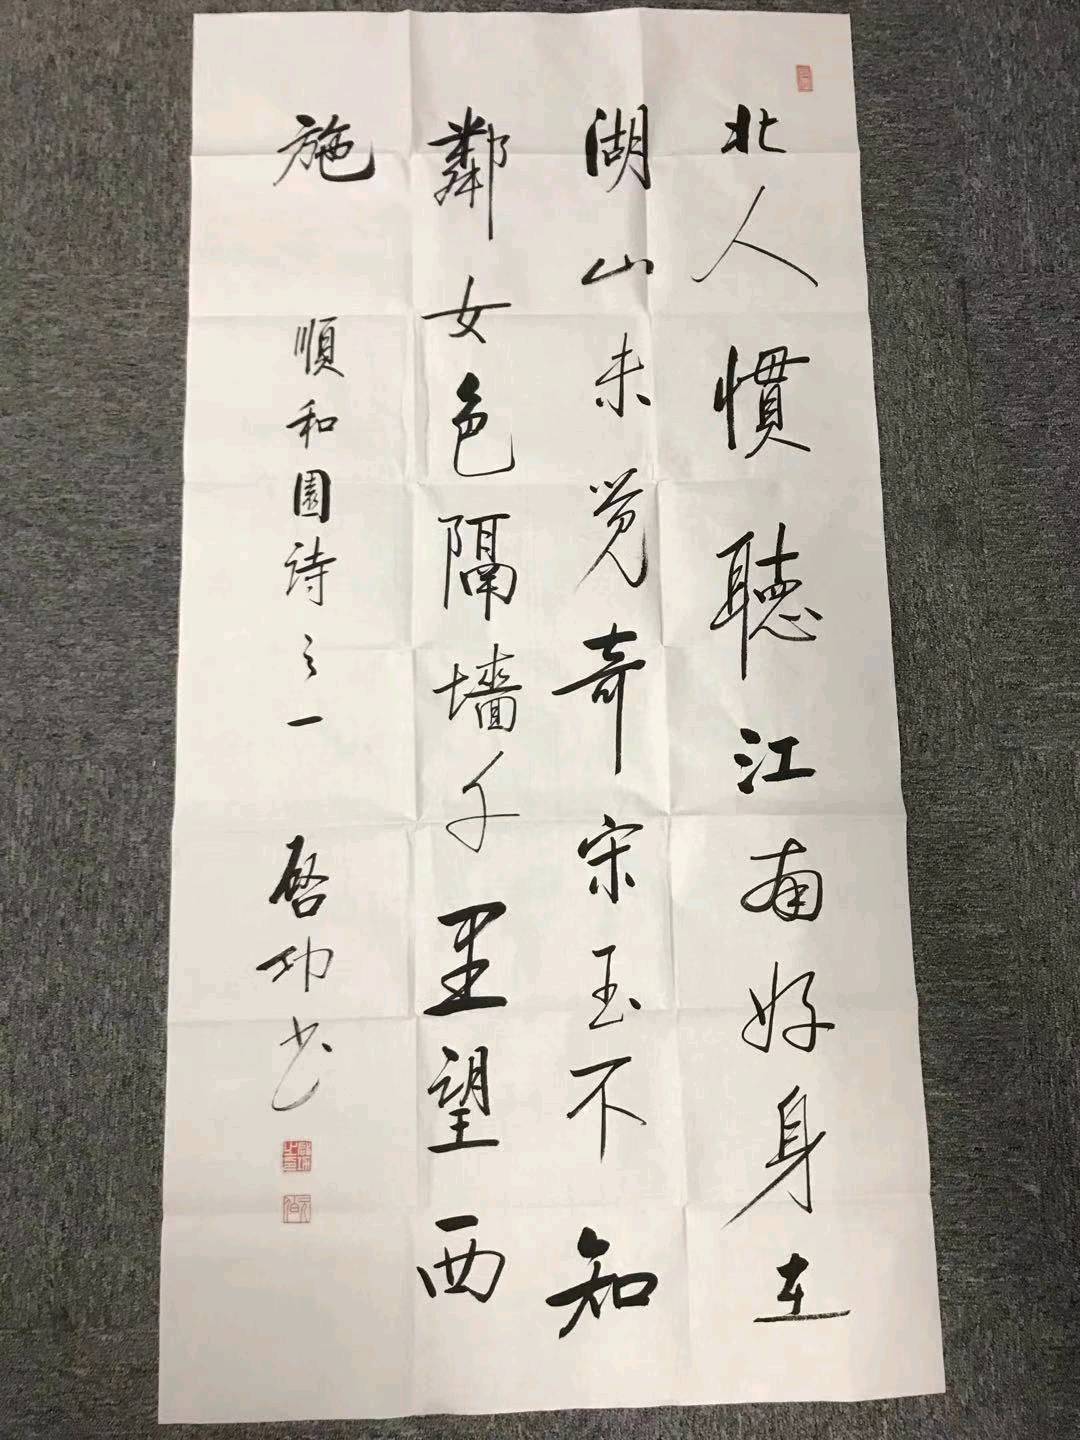 北人慣聽江南好身在
湖山未觉奇宋玉不知
鄰女色隔墻千里望西
施
順和園詩之一
啓功书